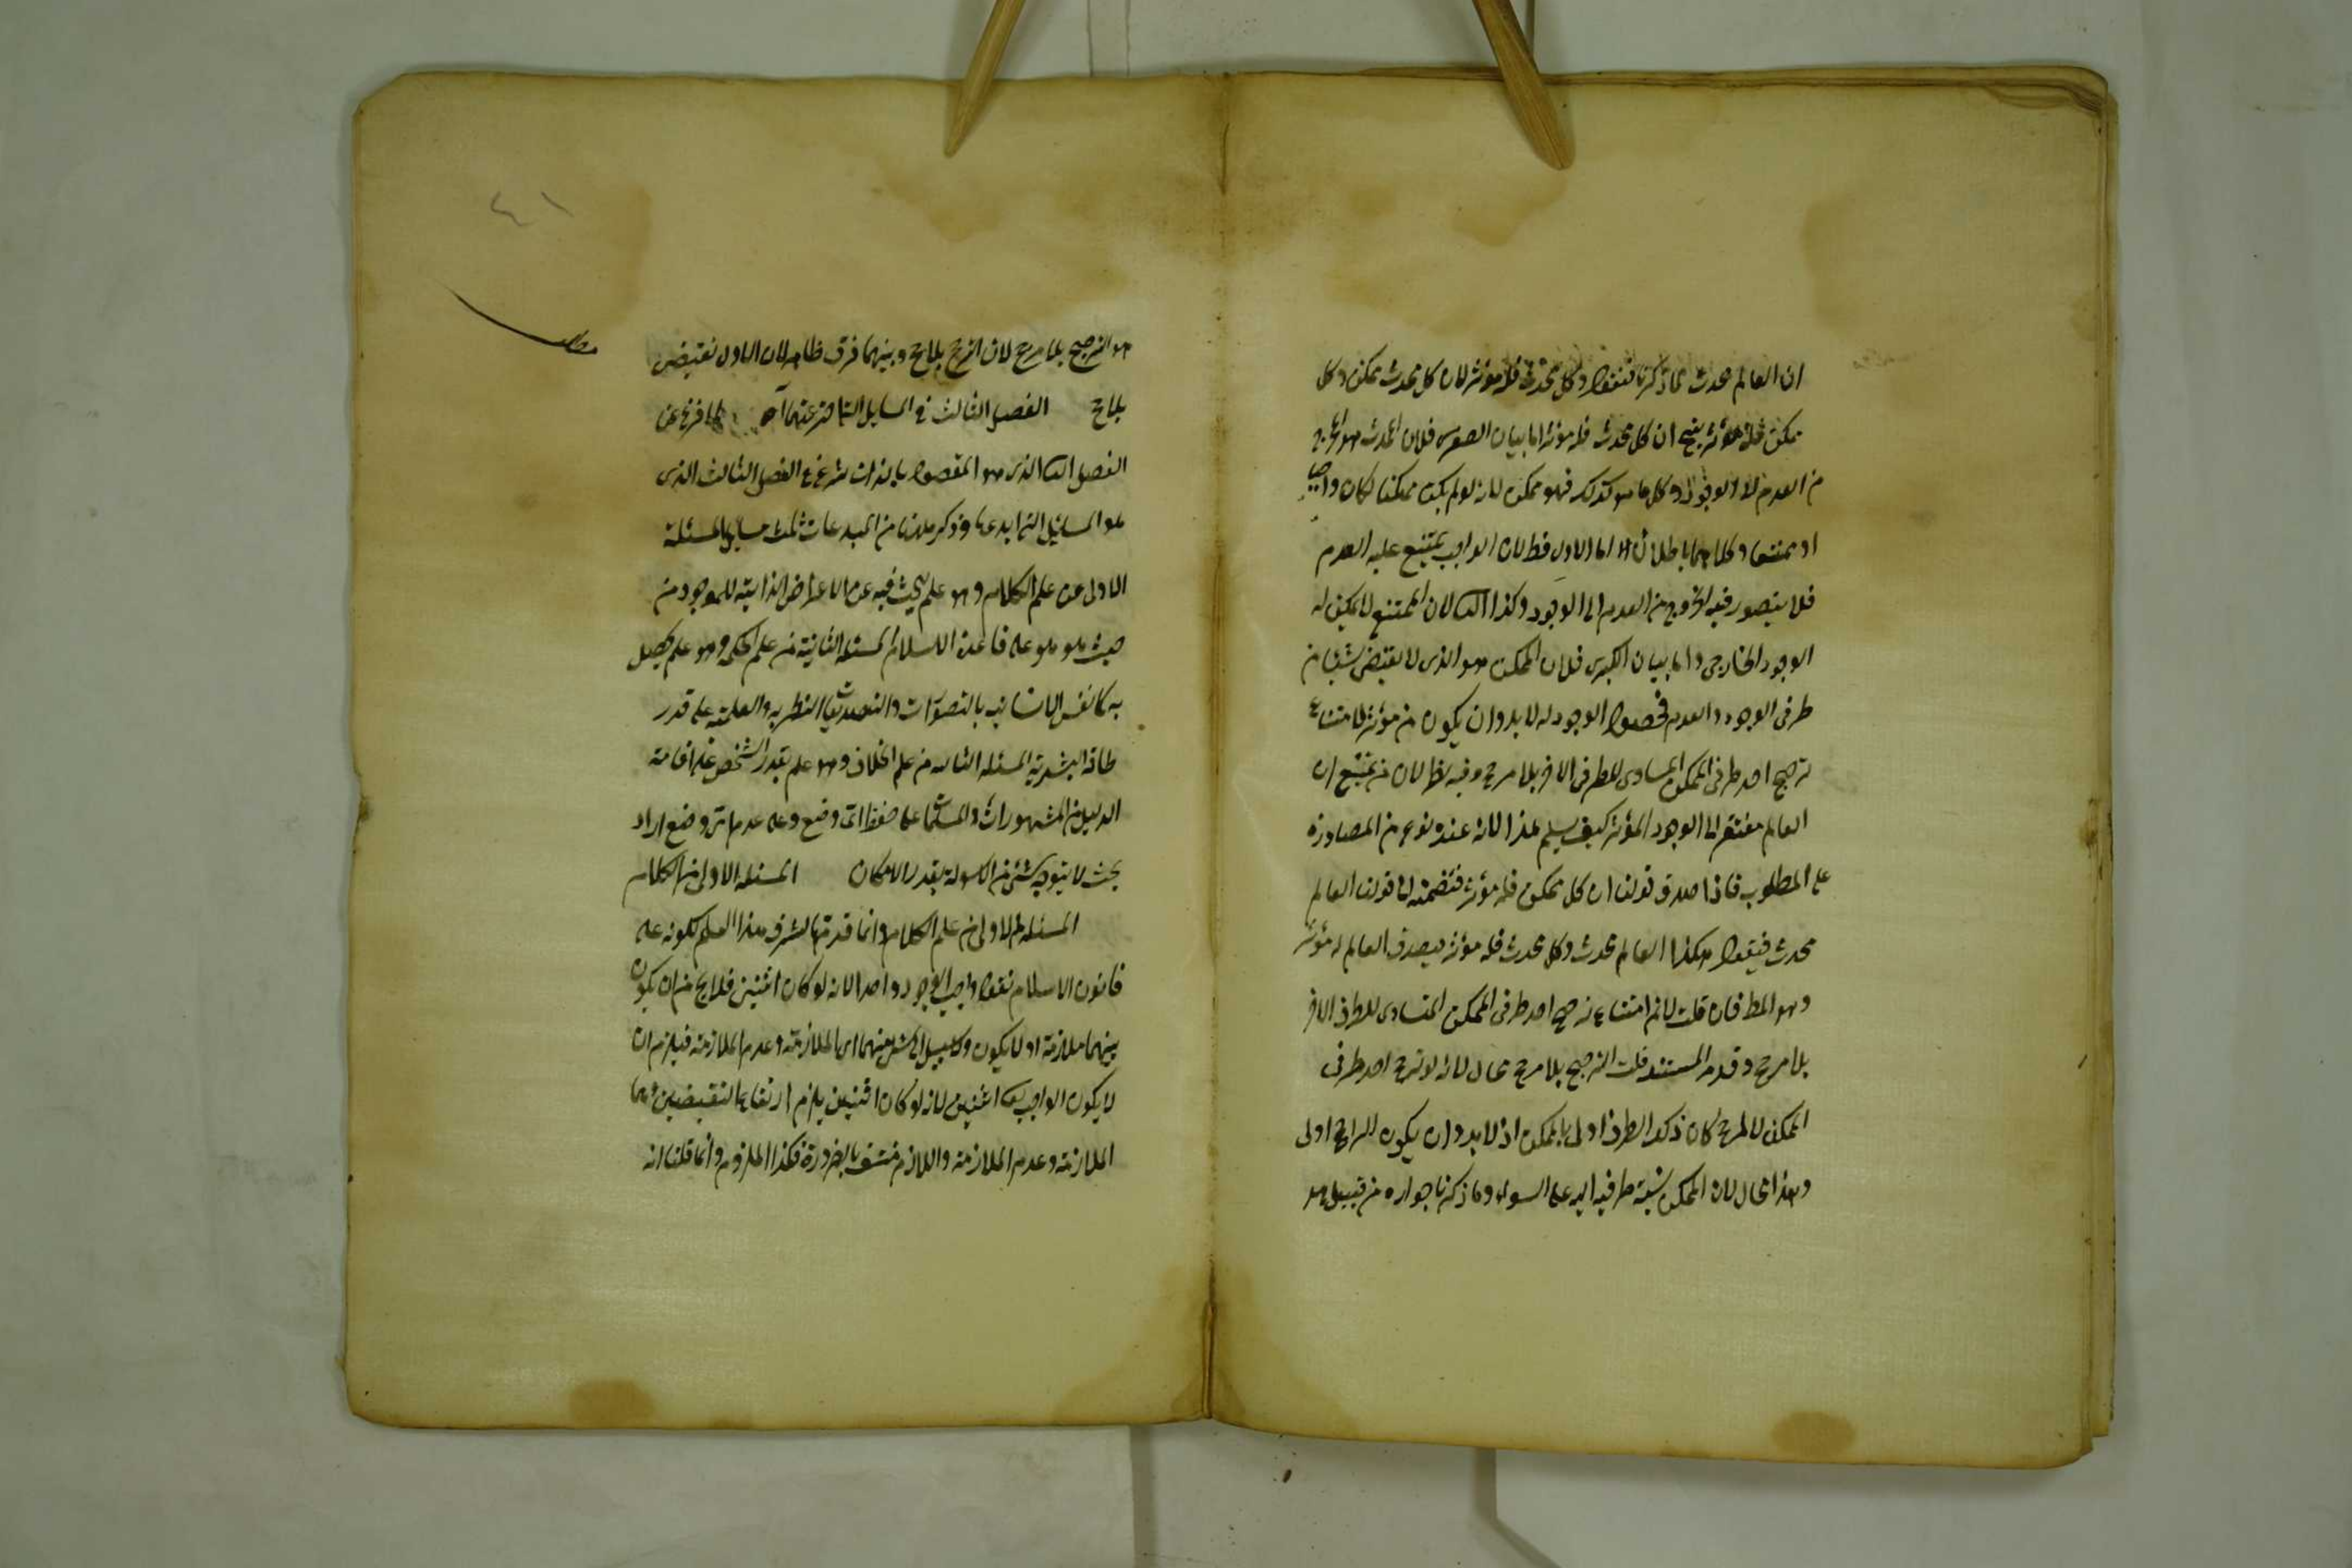 ان العالم محدث لما ذكرنا فنقول وكل محدث فله مؤثر لان كل محدث ممكن وكل
ممكن فله مؤثر ينتج ان كل محدث فله مؤثر اما بيان الصغرى فلان المحدث هو الخارج
من العدم الى الوجود وكل ما هو كذلك فهو ممكن لانه لو لم يكن ممكنا لكان واجبا
او ممتنعا وكلاهما باطلان اما الاول فظ لان الواجب يمتنع عليه العدم
فلا يتصور فيه الخروج من العدم الى الوجود وكذا الثانى لان الممتنع لا يمكن له
الوجود الخارجى واما بيان الكبرى فلان الممكن هو الذى لا يقتضى شيئا من
طرفى الوجود والعدم فحصول الوجود له لا بد وان يكون من مؤثر لامتناع
ترجح احد طرفى الممكن المساوى للطرف الاخر بلا مرجح وفيه نظر لان من يمنع ان
العالم مفتقر الى الوجود المؤثر كيف يسلم هذا لانه عنده نوع من المصادرة
على المطلوب فاذا صدق قولنا ان كل ممكن فله مؤثر فتضمنه الى قولنا العالم
محدث فيقول هكذا العالم محدث وكل محدث فله مؤثر فيصدق العالم له مؤثر
وهو المط فان قلت لانم امتناع ترجح احد طرفى الممكن المتساوى للطرف الاخر
بلا مرجح وقدم المستند قلت الترجح بلا مرجح محال لانه لو ترجح احد طرفى
الممكن لا لمرجح كان ذلك الطرف اولى بالممكن اذ لا بد وان يكون الراجح اولى
وهذا محال لان الممكن نسبة طرفيه اليه على السواء وما ذكرنا جوازه من قبيل هو
٤١
هو الترجيح بلا مرجح لان الترجح بلا مرجح وبينهما فرق ظاهر لان الاول نقيض
بلا مرجح الفصل الثالث فى المسايل التى اخترعتها آه لما فرغ عن
الفصل الثانى الذى هو المقصود بالذات شرع فى الفصل الثالث الذى
هو المسائل التى ابدعها وذكر ههنا من المبدعات ثلث مسايل المسئلة
الاولى من علم الكلام وهو علم يبحث فيه عن الاعراض الذاتية للموجود من
حيث هو هو على قاعدة الاسلام المسئلة الثانية من علم الحكمة وهو علم يحصل
به كمال نفس الانسانية بالتصورات والتصديقات النظرية والعلمية على قدر
طاقة البشرية المسئلة الثالثة من علم الخلاف وهو علم يقدر الشخص على اقامة
الدليل من المشهورات والمسلمات على حفظ اى وضع وعلى هدم اى وضع اراد
بحيث لا يتوجه شئ من الاسولة بقدر الامكان المسئلة الاولى من الكلام
المسئلة الاولى من علم الكلام وانما قدمها لشرف هذا العلم لكونه على
قانون الاسلام نقول واجب الوجود واحد لانه لو كان اثنين فلا يخ من ان يكون
بينهما ملازمة او لا يكون ولا سبيل الى كل منهما اى الملازمة وعدم الملازمة فيلزم ان
لا يكون الواجب اثنين لانه لو كان اثنين يلزم ارتفاع النقيضين وهما
الملازمة وعدم الملازمة واللازم منتف بالضرورة فكذا الملزوم وانما قلنا انه